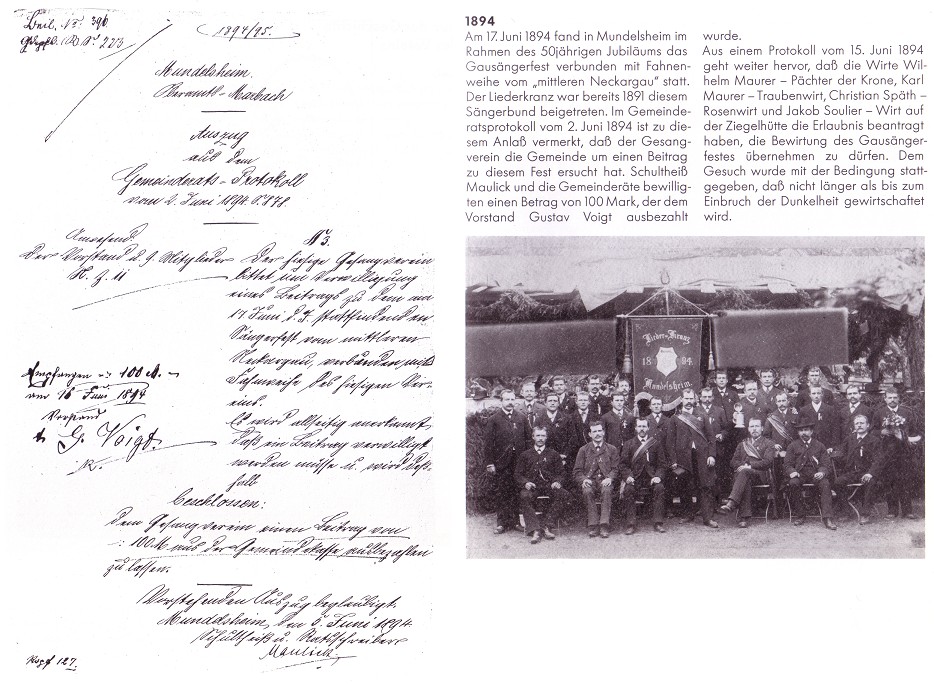 Beil. No. 396
1894/95.
Mundelsheim.
Oberamts Marbach
Auszug
aus dem
Gemeinderats-Protokoll
vom 2. Juni 1894 S. 178.
Anwesend:
Der Vorstand u. 9 Mitglieder
N. z. 11
Empfangen 100 M.
am 16 Juni 1894
Vorstand
G. Voigt
№ 3.
Der hiesige Gesangverein
bittet um Verwilligung
eines Beitrags zu dem am
17 Juni d. J. stattfindenden
Sängerfest vom mittleren
Neckargau, verbunden mit
Fahnenweihe des hiesigen Ver-
eins.
Es wird allseitig anerkannt,
daß ein Beitrag verwilligt
werden müsse u. wird des-
halb
Beschlossen:
dem Gesangverein einen Beitrag von
100 M aus der Gemeindekasse ausbezahlen
zu lassen.
Vorstehenden Auszug beglaubigt.
Mundelsheim, den 5. Juni 1894.
Schultheiß u. Ratschreiber
Maulick
127.
1894
Am 17. Juni 1894 fand in Mundelsheim im
Rahmen des 50jährigen Jubiläums das
Gausängerfest verbunden mit Fahnen-
weihe vom „mittleren Neckargau“ statt.
Der Liederkranz war bereits 1891 diesem
Sängerbund beigetreten. Im Gemeinde-
ratsprotokoll vom 2. Juni 1894 ist zu die-
sem Anlaß vermerkt, daß der Gesang-
verein die Gemeinde um einen Beitrag
zu diesem Fest ersucht hat. Schultheiß
Maulick und die Gemeinderäte bewillig-
ten einen Betrag von 100 Mark, der dem
Vorstand Gustav Voigt ausbezahlt
wurde.
Aus einem Protokoll vom 15. Juni 1894
geht weiter hervor, daß die Wirte Wil-
helm Maurer – Pächter der Krone, Karl
Maurer – Traubenwirt, Christian Späth –
Rosenwirt und Jakob Soulier – Wirt auf
der Ziegelhütte die Erlaubnis beantragt
haben, die Bewirtung des Gausänger-
festes übernehmen zu dürfen. Dem
Gesuch wurde mit der Bedingung statt-
gegeben, daß nicht länger als bis zum
Einbruch der Dunkelheit gewirtschaftet
wird.
Lieder-Kranz
18 94
Mundelsheim.